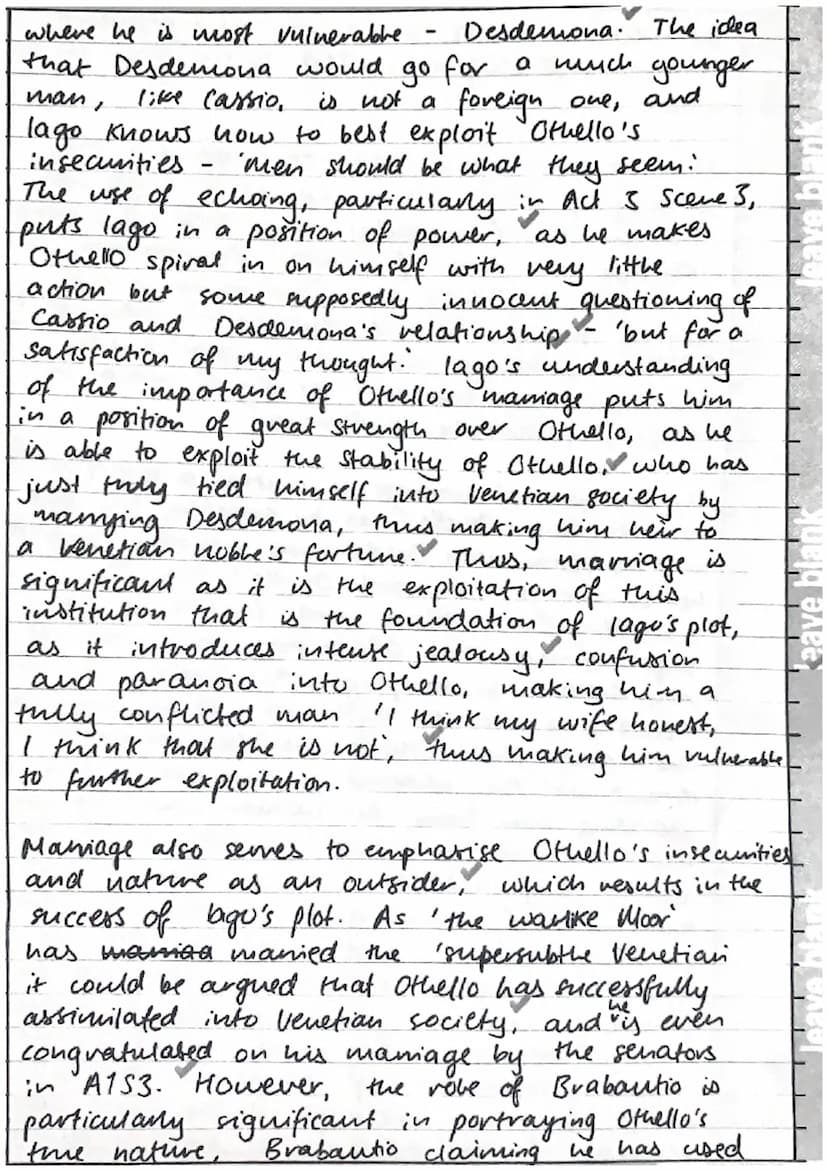 where he is most vulnerable - Desdemona. The idea
that Desdemona would go for a much younger
man, like Cassio, is not a foreign one, and
Iago knows how to best exploit Othello's
insecurities - 'men should be what they seem.'
The use of echoing, particularly in Act 3 Scene 3,
puts Iago in a position of power, as he makes
Othello spiral in on himself with very little
action but some supposedly innocent questioning of
Cassio and Desdemona's relationship - 'but for a
satisfaction of my thought.' Iago's understanding
of the importance of Othello's marriage puts him
in a position of great strength over Othello, as he
is able to exploit the stability of Othello, who has
just truly tied himself into Venetian society by
marrying Desdemona, thus making him heir to
a Venetian noble's fortune. Thus, marriage is
significant as it is the exploitation of this
institution that is the foundation of Iago's plot,
as it introduces intense jealousy, confusion
and paranoia into Othello, making him a
fully conflicted man 'I think my wife honest,
I think that she is not', thus making him vulnerable
to further exploitation.
Marriage also serves to emphasise Othello's insecurities
and nature as an outsider, which results in the
success of Iago's plot. As 'the warlike Moor'
has married the 'supersubtle Venetian'
it could be argued that Othello has successfully
assimilated into Venetian society, and he is even
congratulated on his marriage by the senators
in A1S3. However, the role of Brabantio is
particularly significant in portraying Othello's
true nature, Brabantio claiming he has used
leave blank
leave blank
leave blank